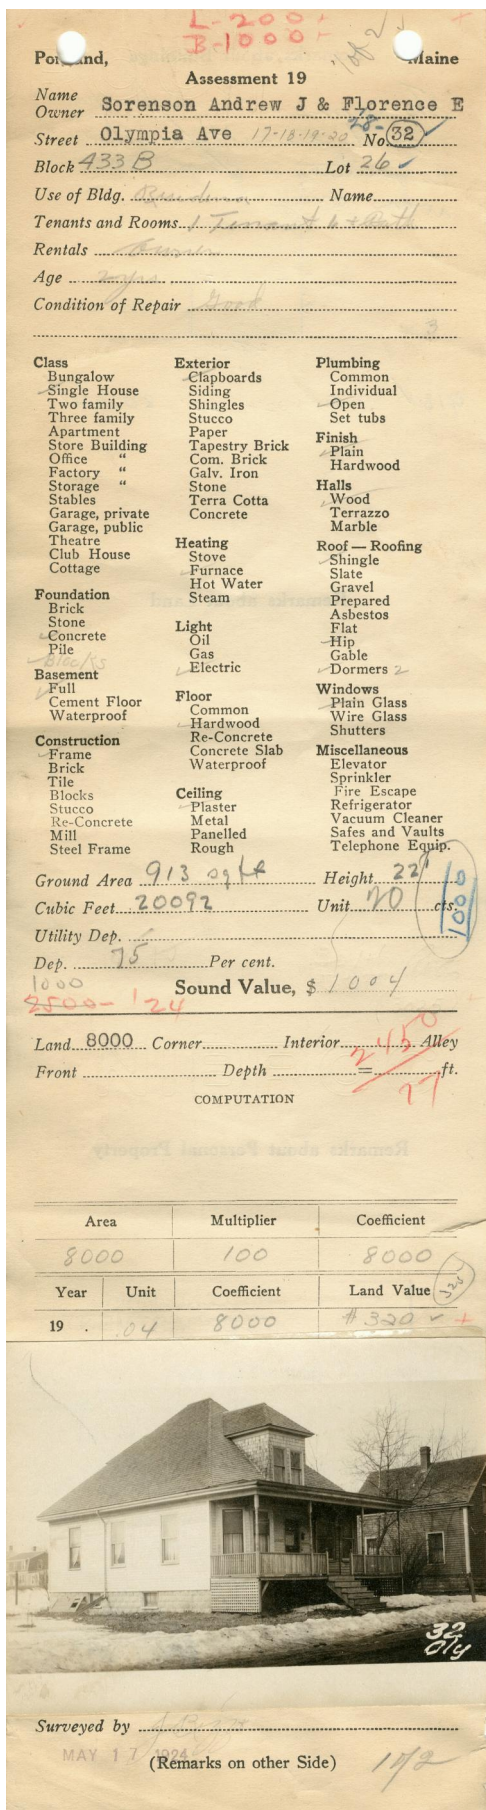 L-200-
B-1000-
1 of 2
Portland, Maine
Assessment 19
Name
Owner Sorenson Andrew J & Florence E
28-
Street Olympia Ave 17-18-19-20 No. 32
Block 433 B Lot 26
Use of Bldg. Residence Name
Tenants and Rooms 1 Tenant 6 + Bath
Rentals Owner
Age 20 yrs
Condition of Repair Good
3
Class
Bungalow
Single House
Two family
Three family
Apartment
Store Building
Office "
Factory "
Storage "
Stables
Garage, private
Garage, public
Theatre
Club House
Cottage
Foundation
Brick
Stone
Concrete
Pile
Blocks
Basement
Full
Cement Floor
Waterproof
Construction
Frame
Brick
Tile
Blocks
Stucco
Re-Concrete
Mill
Steel Frame
Exterior
Clapboards
Siding
Shingles
Stucco
Paper
Tapestry Brick
Com. Brick
Galv. Iron
Stone
Terra Cotta
Concrete
Heating
Stove
Furnace
Hot Water
Steam
Light
Oil
Gas
Electric
Floor
Common
Hardwood
Re-Concrete
Concrete Slab
Waterproof
Ceiling
Plaster
Metal
Panelled
Rough
Plumbing
Common
Individual
Open
Set tubs
Finish
Plain
Hardwood
Halls
Wood
Terrazzo
Marble
Roof — Roofing
Shingle
Slate
Gravel
Prepared
Asbestos
Flat
Hip
Gable
Dormers 2
Windows
Plain Glass
Wire Glass
Shutters
Miscellaneous
Elevator
Sprinkler
Fire Escape
Refrigerator
Vacuum Cleaner
Safes and Vaults
Telephone Equip.
Ground Area 913 sq ft Height 22'
Cubic Feet 20092 Unit 20 cts.
1000
Utility Dep.
Dep. 75 Per cent.
1000
Sound Value, $ 1004
2500- '24
Land 8000 Corner Interior Alley
Front Depth = ft.
2450
27
COMPUTATION
Area Multiplier Coefficient
8000 100 8000
Year Unit Coefficient Land Value 325
19 . .04 8000 # 320
32
Oly
Surveyed by
MAY 17 1924
(Remarks on other Side)